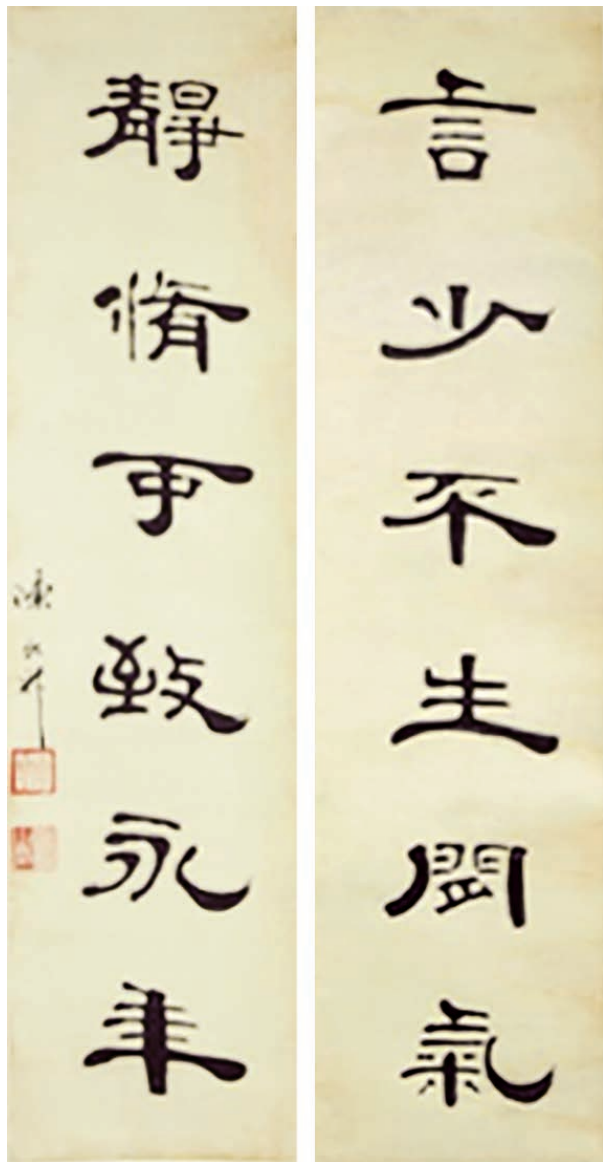 言少不生閒氣
靜脩可致永年
陳